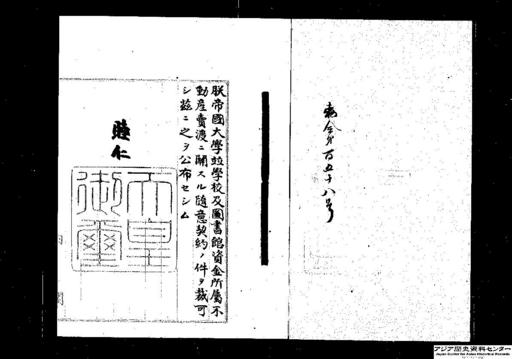 勅令第百五十八号
朕帝國大學竝學校及圖書館資金所屬不
動産賣渡ニ關スル隨意契約ノ件ヲ裁可
シ茲ニ之ヲ公布セシム
睦仁
天皇
御璽
内閣
アジア歴史資料センター
Japan Center for Asian Historical Records